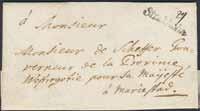 à Monsieur
Monsieur de Scheffer Gou-
verneur de la Province
Westrogotie pour sa Majesté
à Mariestad.